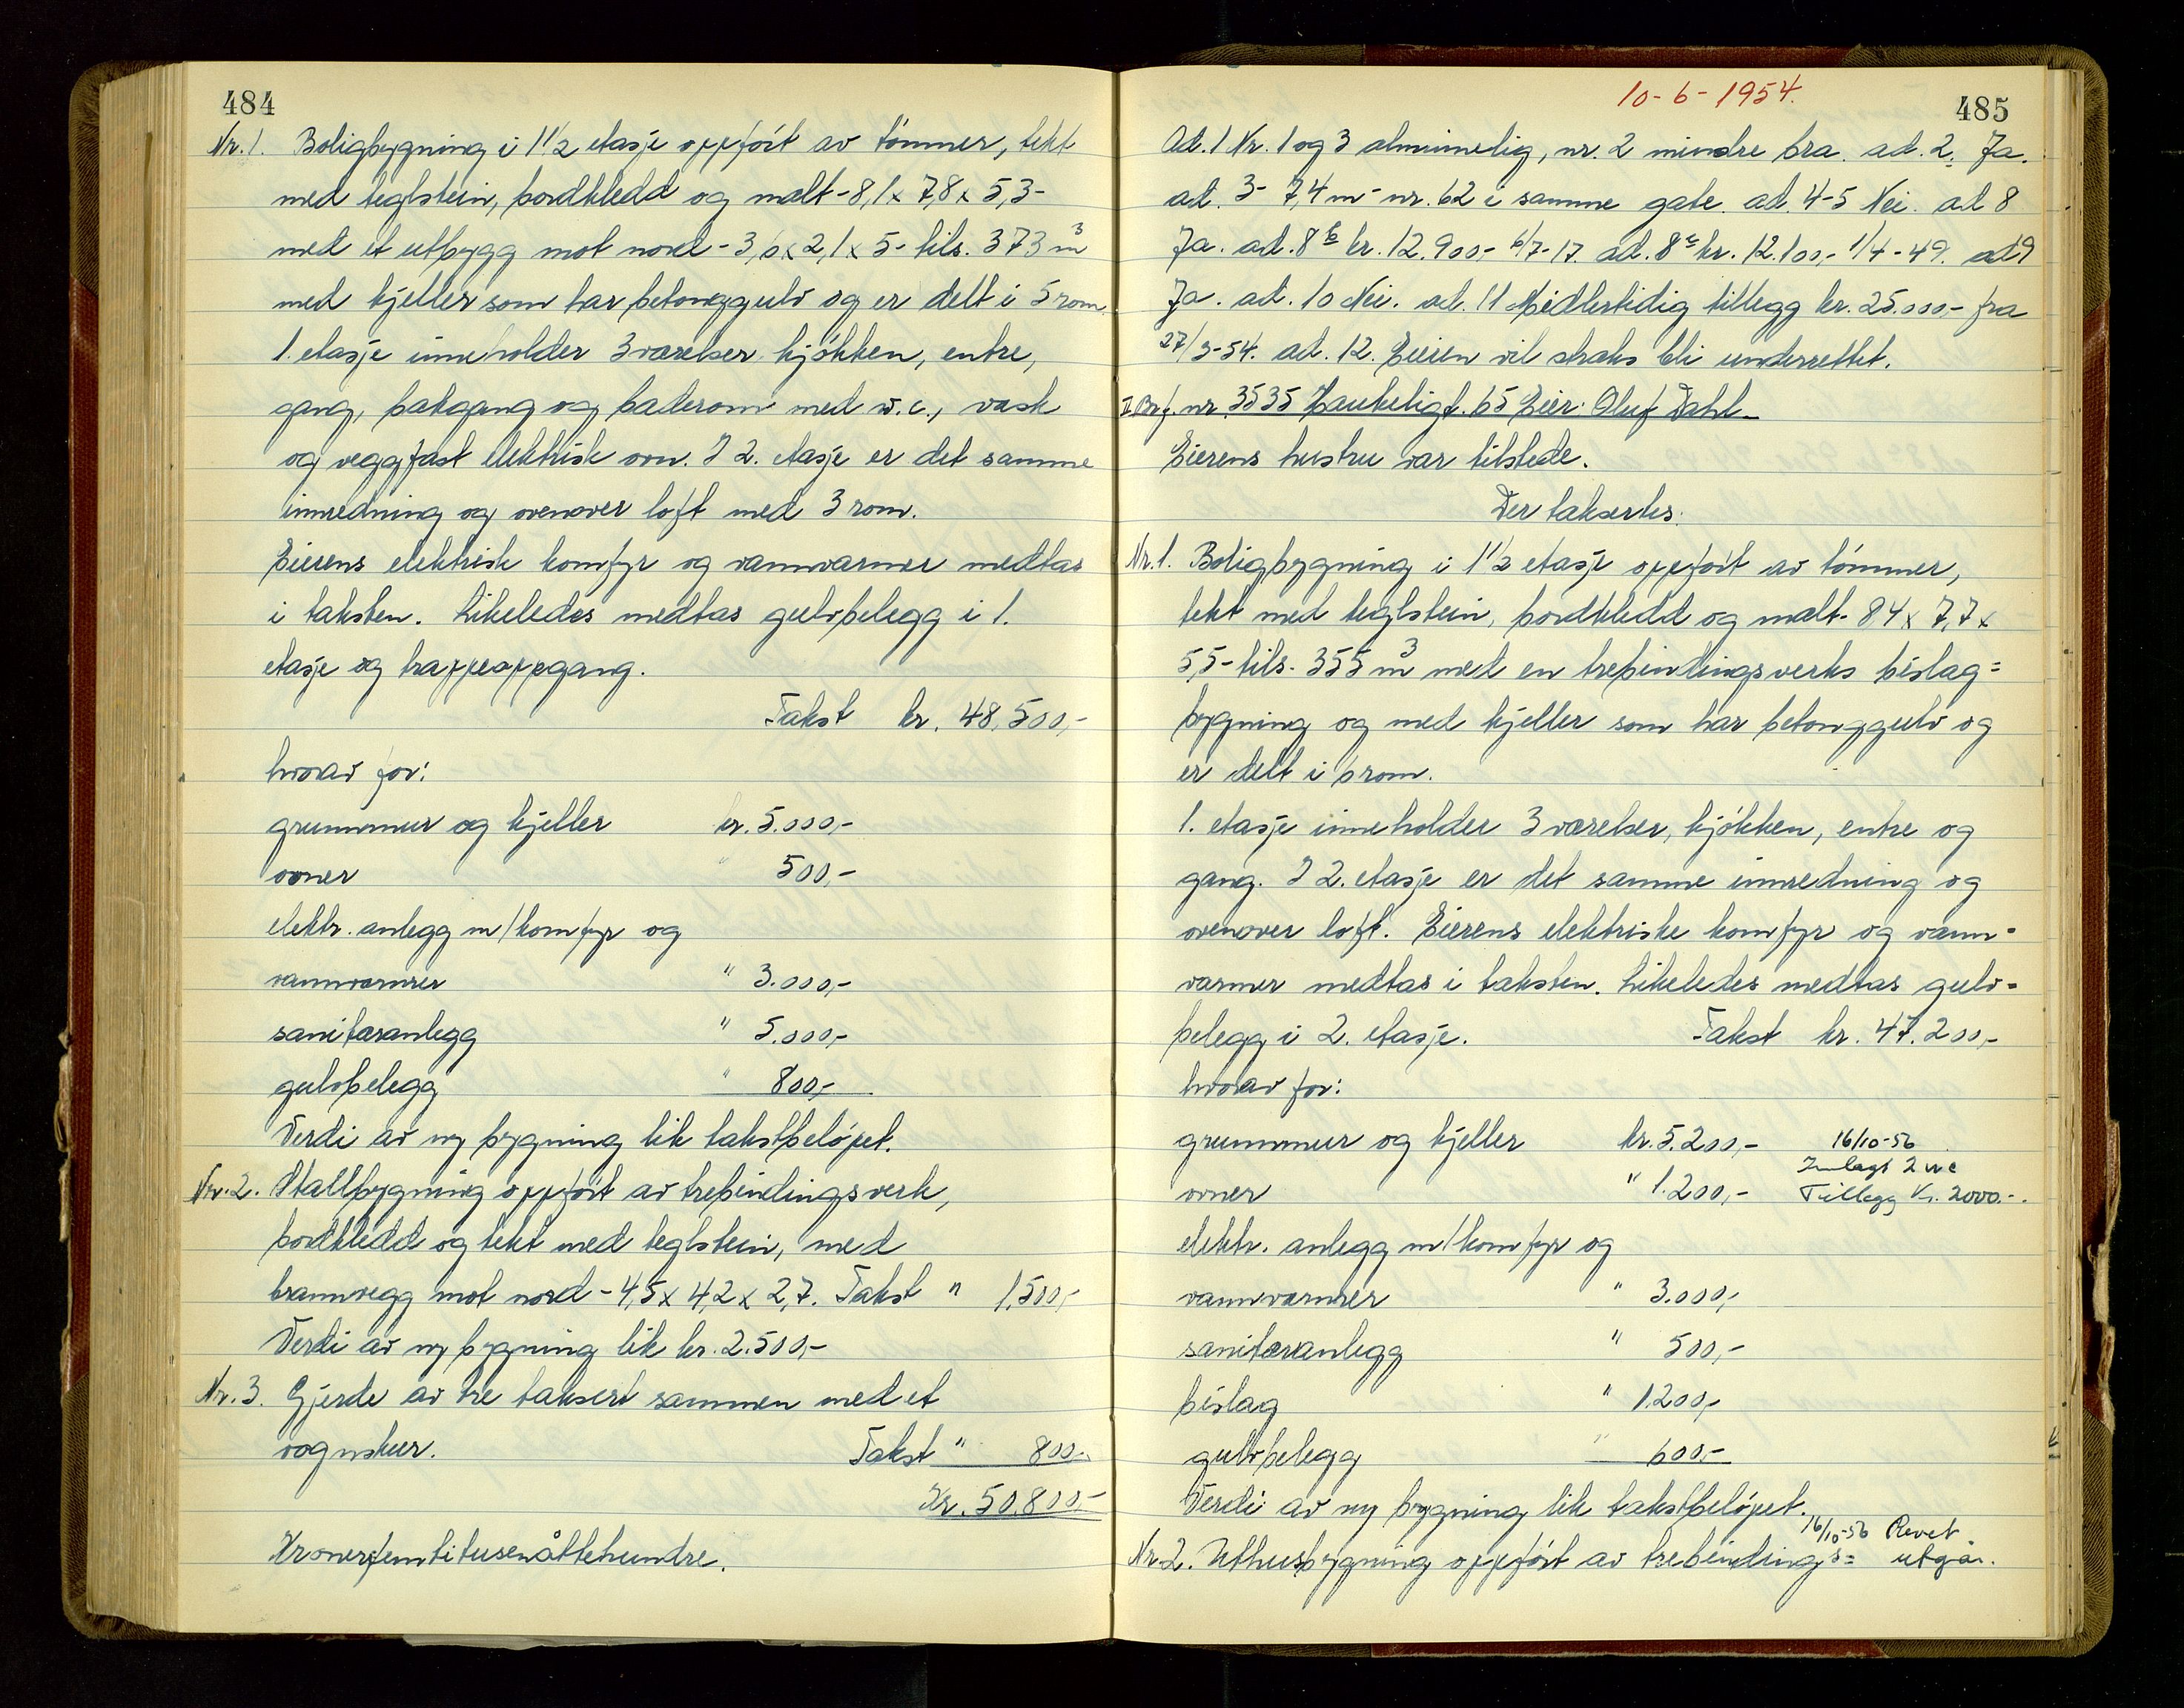 484
Nr. 1. Boligbygning i 1 1/2 etasje oppfört av tömmer, tekt
med teglstein, bordkledd og malt - 8,1 x 7,8 x 5,3 -
med et utbygg mot nord - 3,6 x 2,1 x 5 - tils. 373 m³
med kjeller som har betonggulv og er delt i 5 rom.
1. etasje inneholder 3 værelser, kjökken, entre,
gang, bakgang og baderom med w.c., vask
og veggfast elektrisk ovn. I 2. etasje er det samme
innredning og ovenover loft med 3 rom.
Eierens elektrisk komfyr og vannvarmer medtas
i taksten. Likeledes medtas gulvbelegg i 1.
etasje og trappeoppgang.
Takst kr. 48.500,-
hvorav for:
grunnmur og kjeller kr. 5.000,-
ovner " 500,-
elektr. anlegg m/komfyr og
vannvarmer " 3.000,-
sanitæranlegg " 5.000,-
gulvbelegg " 800,-
Verdi av ny bygning lik takstbelöpet.
Nr. 2. Stallbygning oppfört av trebindingsverk,
bordkledd og tekt med teglstein, med
brannvegg mot nord - 4,5 x 4,2 x 2,7. Takst " 1.500,-
Verdi av ny bygning lik kr. 2.500,-
Nr. 3. Gjerde av tre taksert sammen med et
vognskur. Takst " 800,-
Kr. 50.800,-
Kronerfemtitusenåttehundre.
10-6-1954.
485
Ad. 1 Nr. 1 og 3 alminnelig, nr. 2 mindre bra. ad. 2. Ja.
ad. 3 - 7,4 m - nr. 62 i samme gate. ad. 4-5 Nei. ad 8
Ja. ad. 8 b kr. 12.900,- 6/7-17. ad. 8 c kr. 12.100,- 1/4-49. ad 9
Ja. ad. 10 Nei. ad. 11 Midlertidig tillegg kr. 25.000,- fra
27/3-54. ad. 12. Eieren vil straks bli underrettet.
II. Brf. nr. 3535 Haukeligt. 65 Eier: Oluf Dahl -
Eierens hustru var tilstede.
Der taksertes:
Nr. 1. Boligbygning i 1 1/2 etasje oppfört av tömmer,
tekt med teglstein, bordkledd og malt - 8 4 x 7,7 x
5,5 - tils. 355 m³ med en trebindingsverks bislag=
bygning og med kjeller som har betonggulv og
er delt i 6 rom.
1. etasje inneholder 3 værelser, kjökken, entre og
gang. I 2. etasje er det samme innredning og
ovenover loft. Eierens elektriske komfyr og vann=
varmer medtas i taksten. Likeledes medtas gulv=
belegg i 2. etasje. Takst kr. 47.200,-
hvorav for:
grunnmur og kjeller kr. 5.200,- 16/10-56
Innlagt 2 wc
ovner " 1.200,- Tillegg Kr. 2000.-.
elektr. anlegg m/komfyr og
vannvarmer " 3.000,-
sanitæranlegg " 500,-
bislag " 1.200,-
gulvbelegg " 600,-
Verdi av ny bygning lik takstbelöpet.
16/10-56 Revet
Nr. 2. Uthusbygning oppfört av trebindings= utgår.